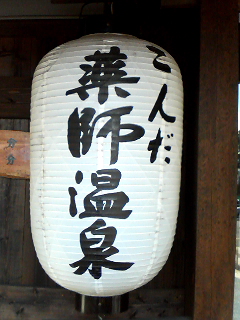 こんだ
薬師温泉